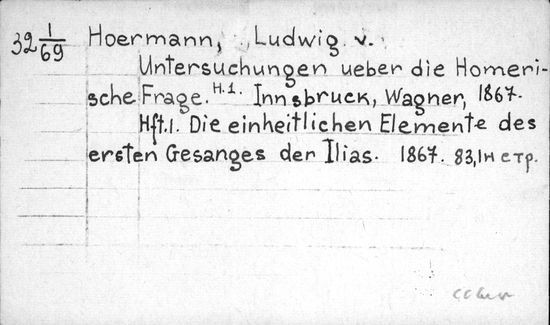 32 1/69 Hoermann, Ludwig v.
Untersuchungen ueber die Homeri-
sche Frage. H.1. Innsbruck, Wagner, 1867.
Hft.1. Die einheitlichen Elemente des
ersten Gesanges der Ilias. 1867. 83,1н стр.